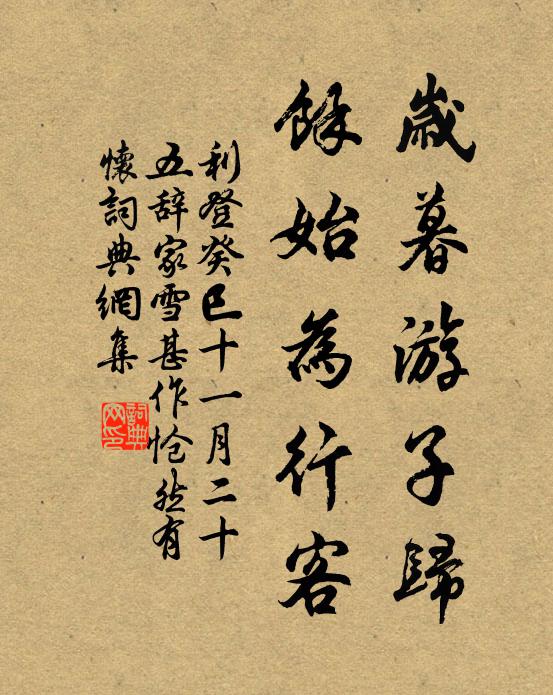 歲暮游子歸
餘始為行客
利登癸巳十一月二十
五辞家雪甚作怆然有
懷詞典網集
詞典
网印